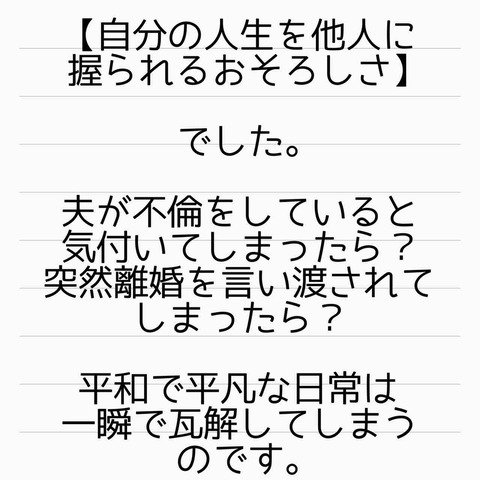 【自分の人生を他人に
握られるおそろしさ】
でした。
夫が不倫をしていると
気付いてしまったら？
突然離婚を言い渡されて
しまったら？
平和で平凡な日常は
一瞬で瓦解してしまう
のです。